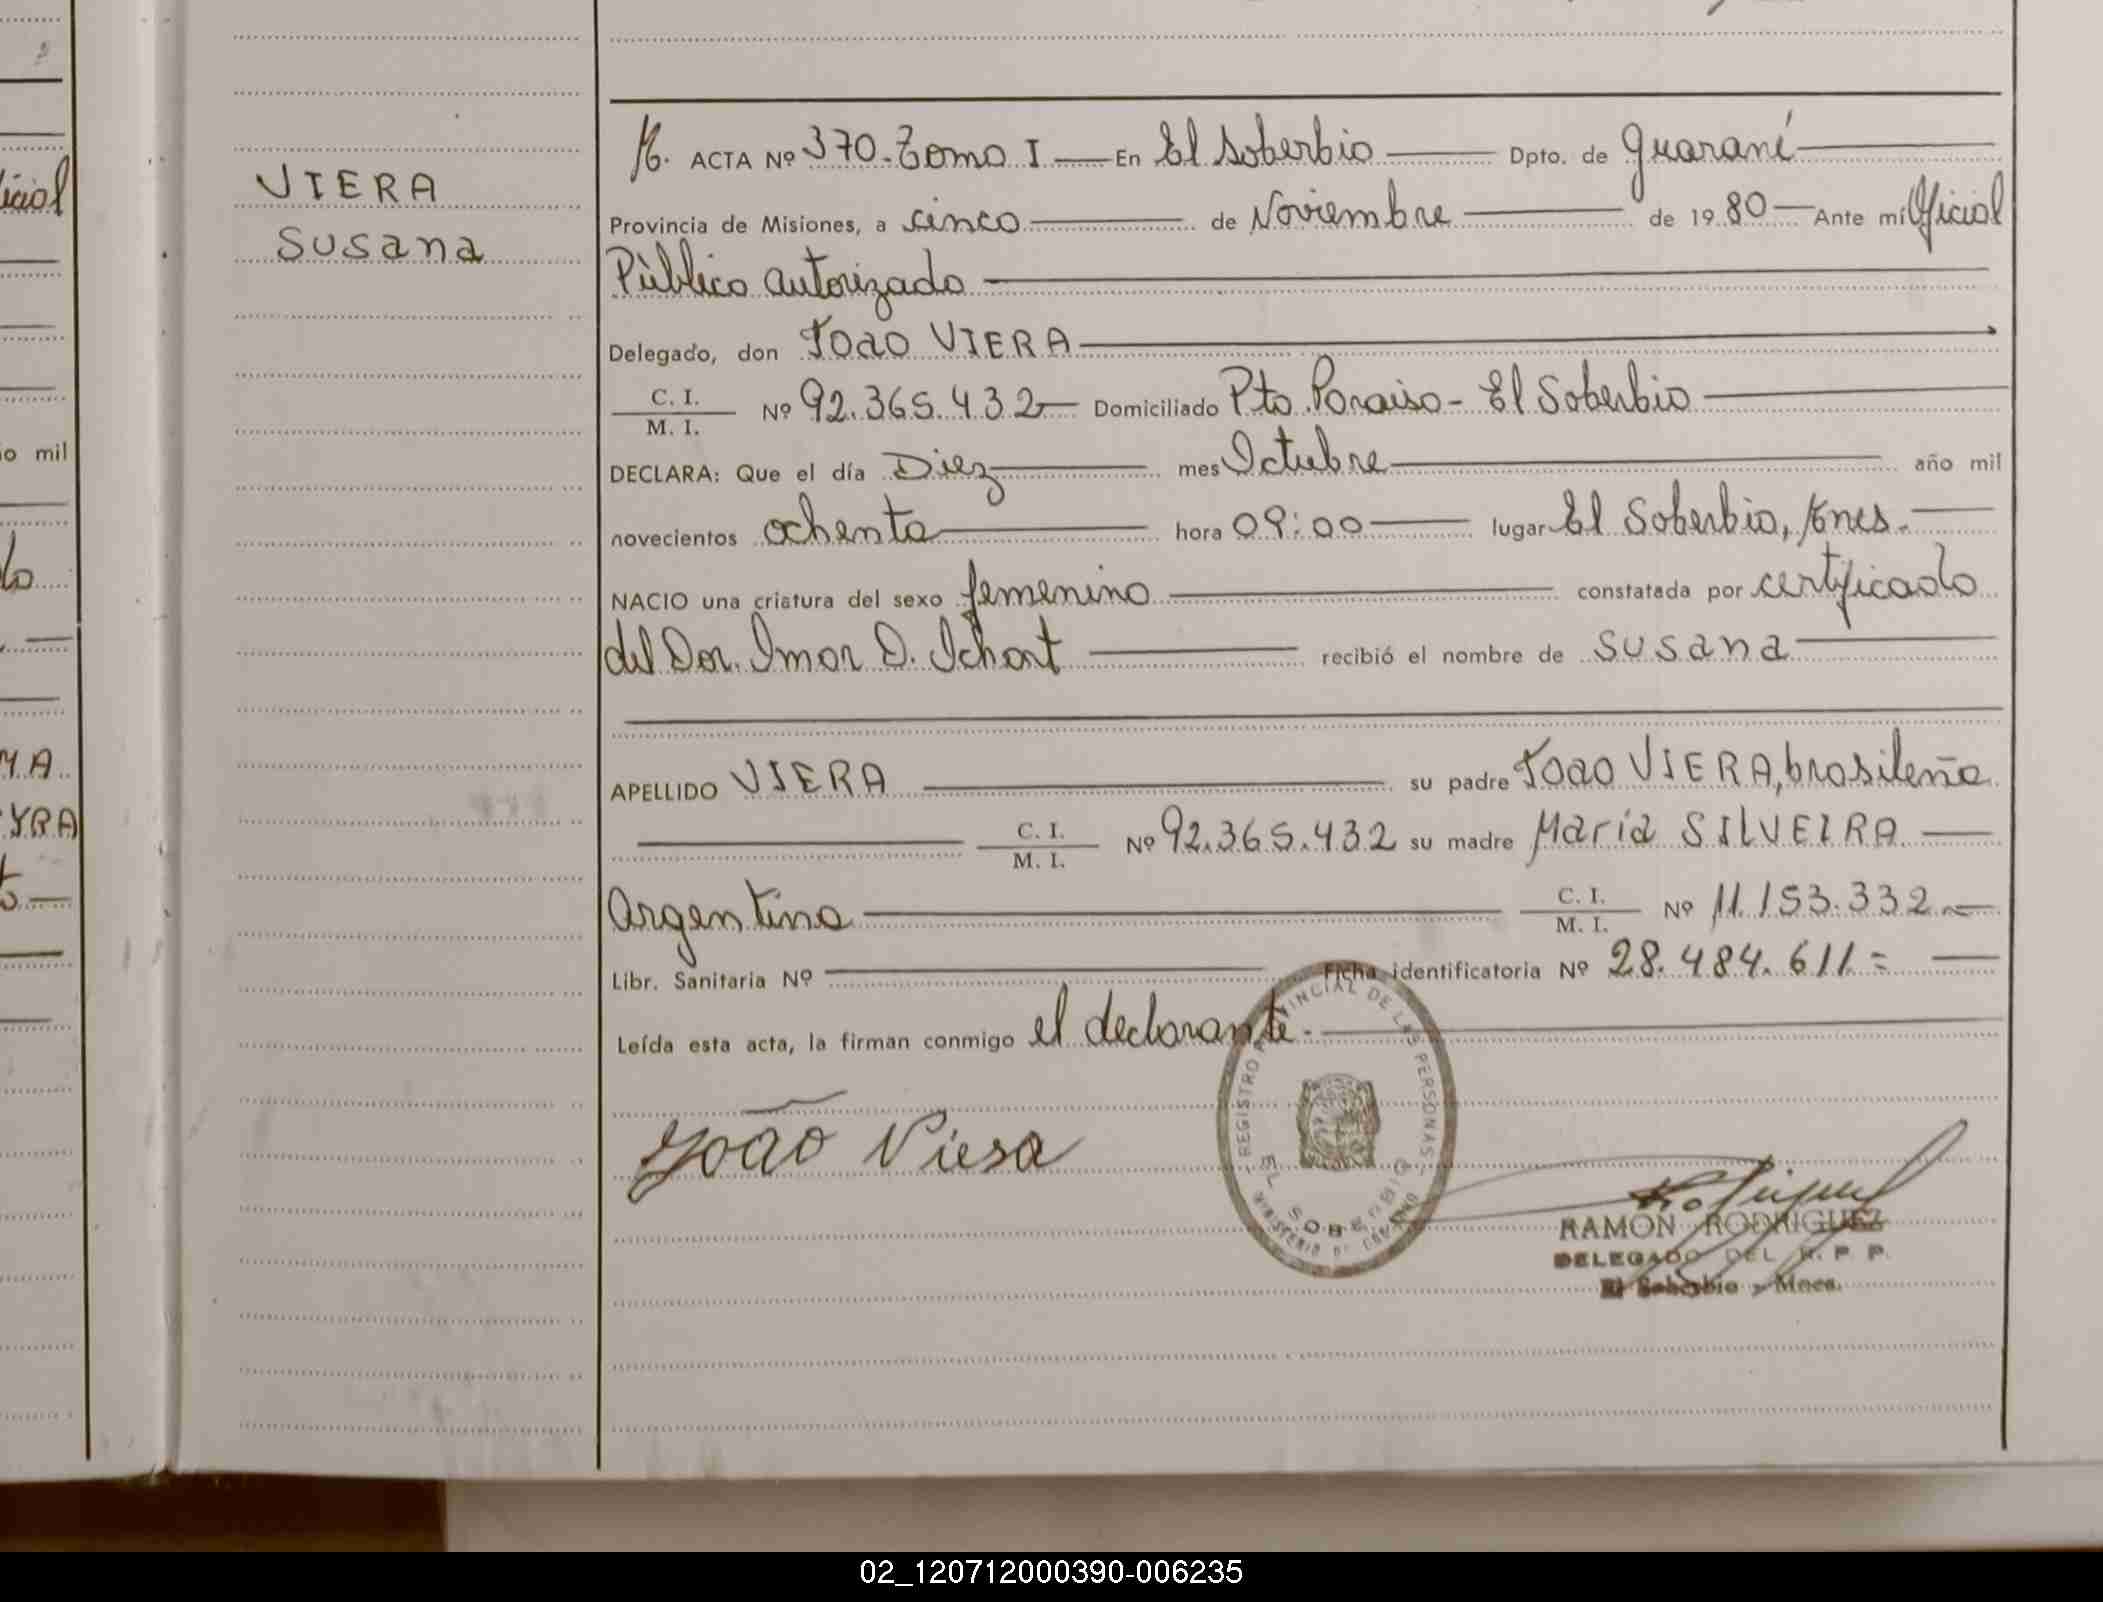 VIERA
Susana
ACTA Nº 370. Tomo I En El Soberbio Dpto. de Guaraní
Provincia de Misiones, a cinco de Noviembre de 1980 Ante mí Oficial
Público autorizado
Delegado, don Joao VIERA
C. I.
M. I.
Nº 92.365.432 Domiciliado Pto. Paraiso - El Soberbio
DECLARA: Que el día Diez mes Octubre año mil
novecientos ochenta hora 09:00 lugar El Soberbio, Mnes.
NACIO una criatura del sexo femenino constatada por certificado
del Dor. Imar D. recibió el nombre de Susana
APELLIDO VIERA su padre Joao VIERA, brasileña
C. I.
M. I.
Nº 92.365.432 su madre María SILVEIRA
Argentina
C. I.
M. I.
Nº 11.153.332
Libr. Sanitaria Nº Ficha identificatoria Nº 28.484.611=
Leída esta acta, la firman conmigo el declarante.
REGISTRO PROVINCIAL DE LAS PERSONAS
EL SOBERBIO
MINISTERIO DE GOBIERNO
João Viera
RAMON RODRIGUEZ
DELEGADO DEL R. P. P.
El Soberbio - Mnes.
icial
io mil
lo
MA
YRA
02_120712000390-006235